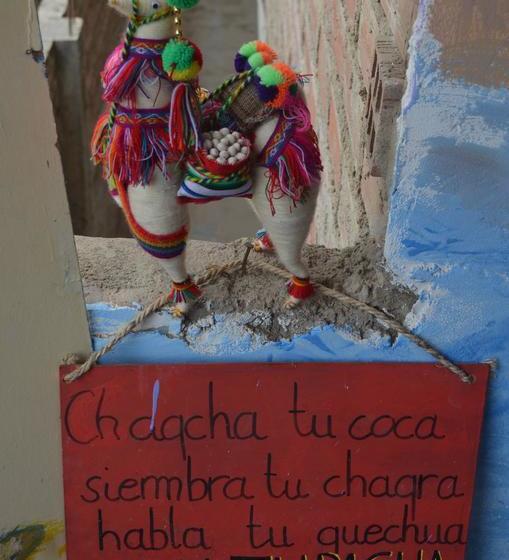 Chaqcha tu coca
siembra tu chaqra
habla tu quechua